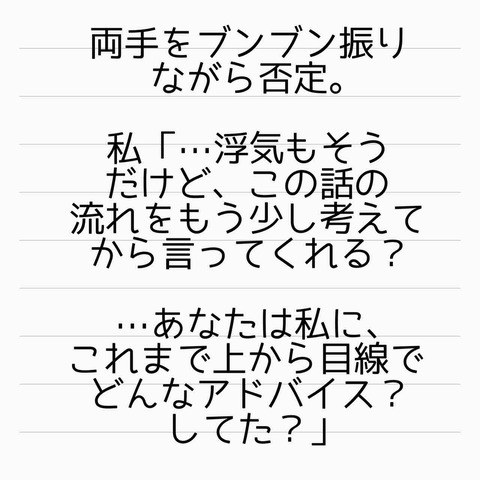 両手をブンブン振り
ながら否定。
私「…浮気もそう
だけど、この話の
流れをもう少し考えて
から言ってくれる？
…あなたは私に、
これまで上から目線で
どんなアドバイス？
してた？」